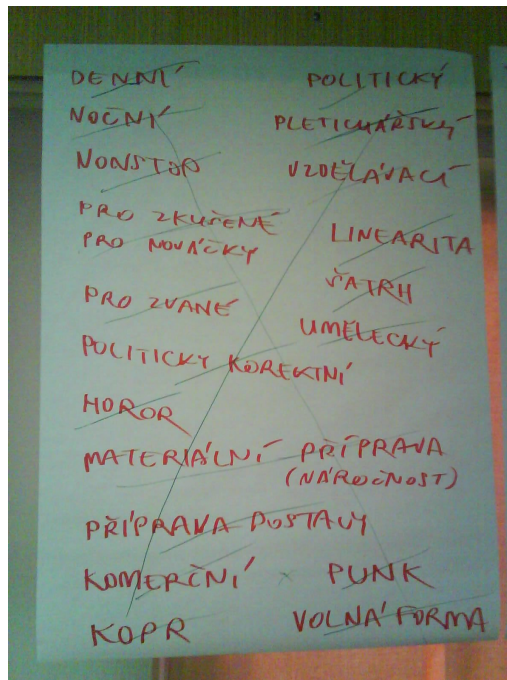 DENNÍ
NOČNÍ
NONSTOP
PRO ZKUŠENÉ
PRO NOVÁČKY
PRO ZVANÉ
POLITICKY KOREKTNÍ
HOROR
MATERIÁLNÍ PŘÍPRAVA
(NÁROČNOST)
PŘÍPRAVA POSTAVY
KOMERČNÍ × PUNK
KOPR
POLITICKÝ
PLETICHÁŘSKÝ
VZDĚLÁVACÍ
LINEARITA
ŠATRH
UMĚLECKÝ
VOLNÁ FORMA